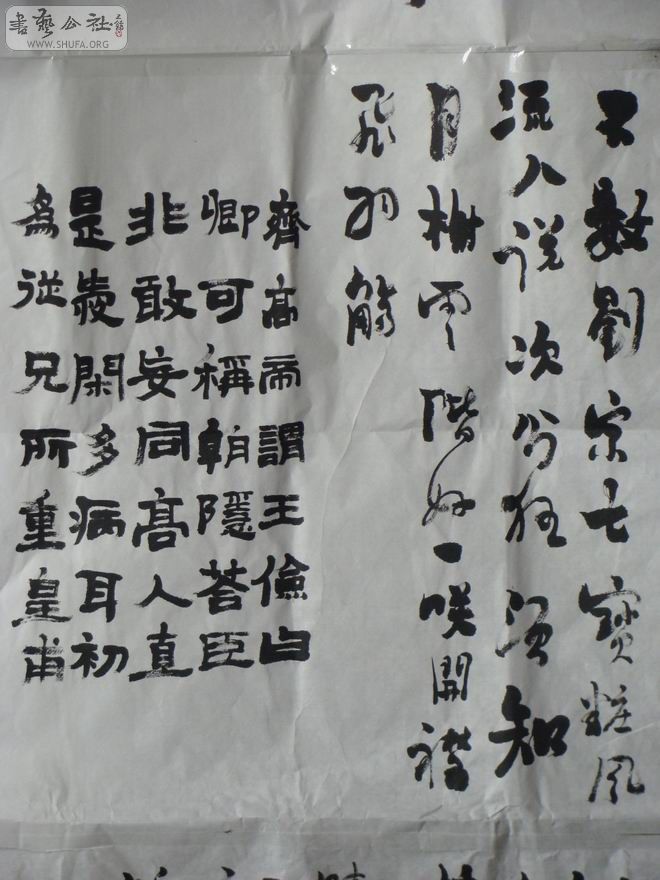 書藝公社
WWW.SHUFA.ORG
不數劉家七寶粧風
流八詠次公狂須知
月榭雲階好一咲開襟
飛羽觴
齊高帝謂王儉曰
卿可稱朝隱荅臣
非敢妄同高人直
是愛閑多病耳初
為從兄所重皇甫